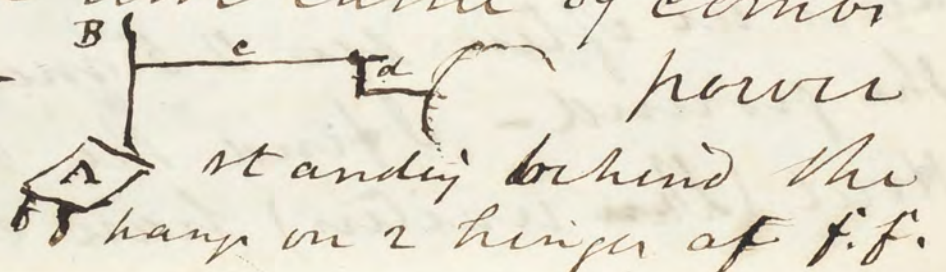 of combi
B c d power
A standing behind the
hang on 2 hinges at f.f.